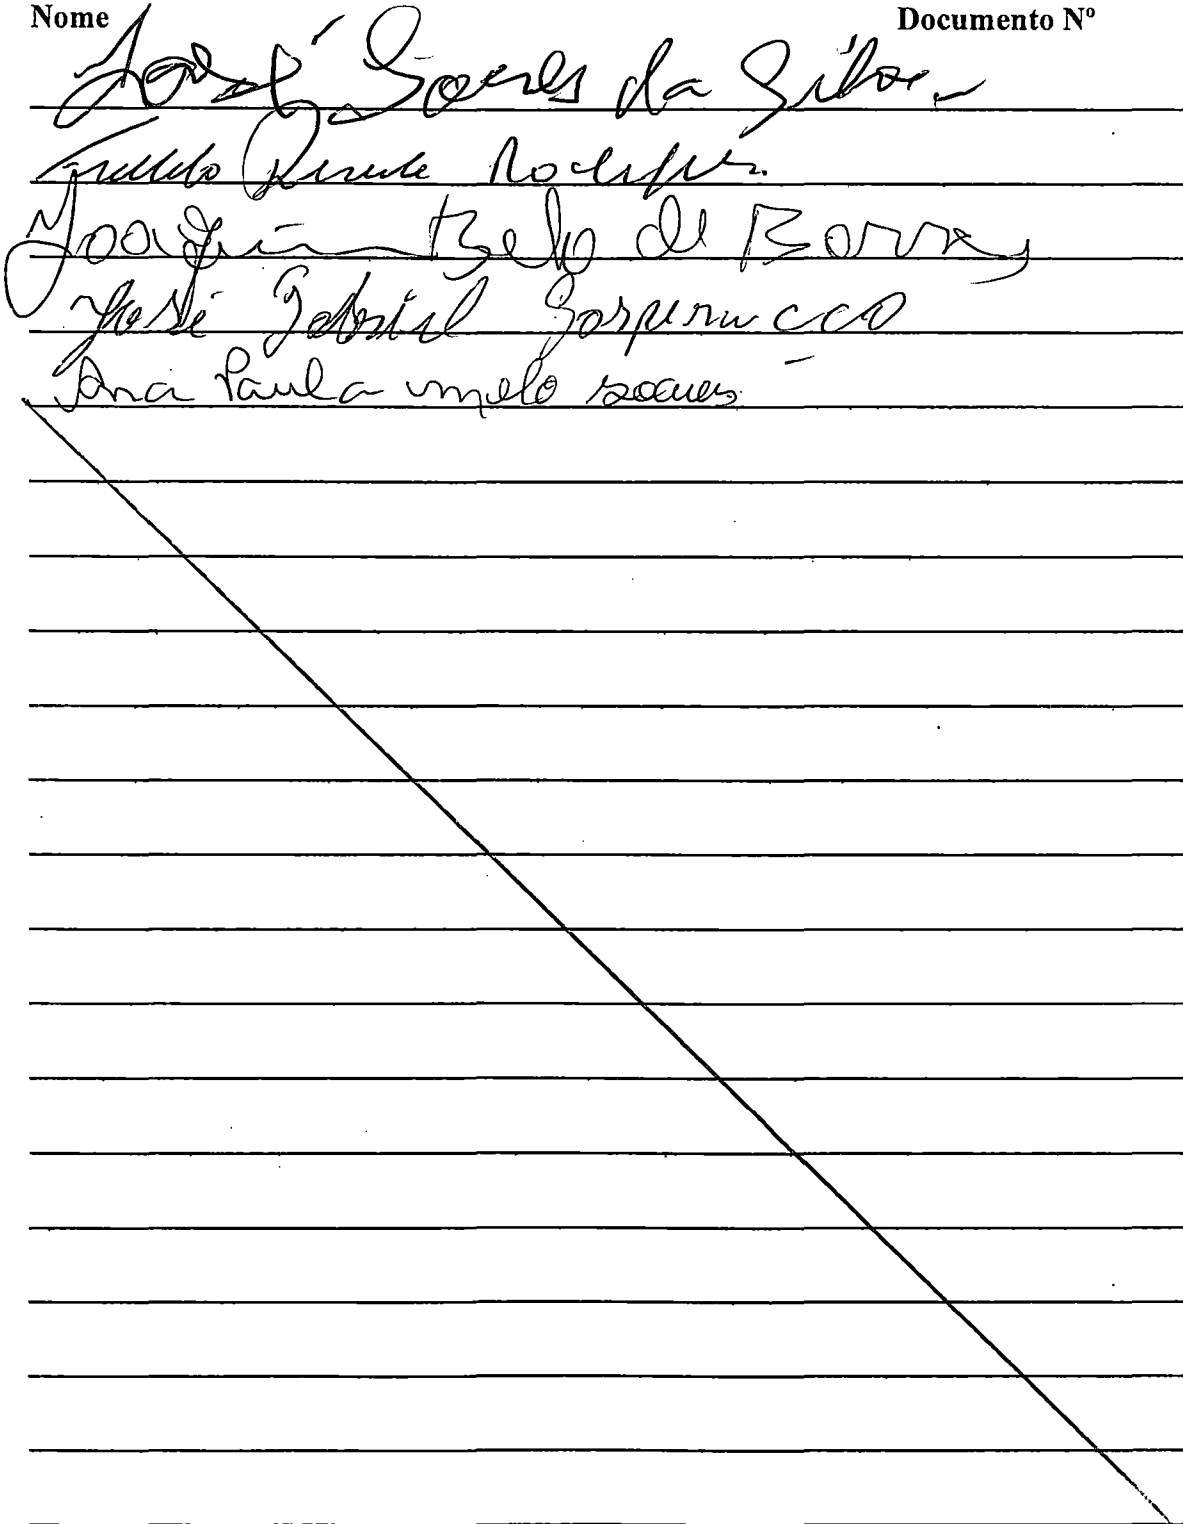 Nome Documento Nº
José Soares da Silva
Rodrigues
Joaquim Belo de Barros
José Gabriel
Ana Paula melo soares